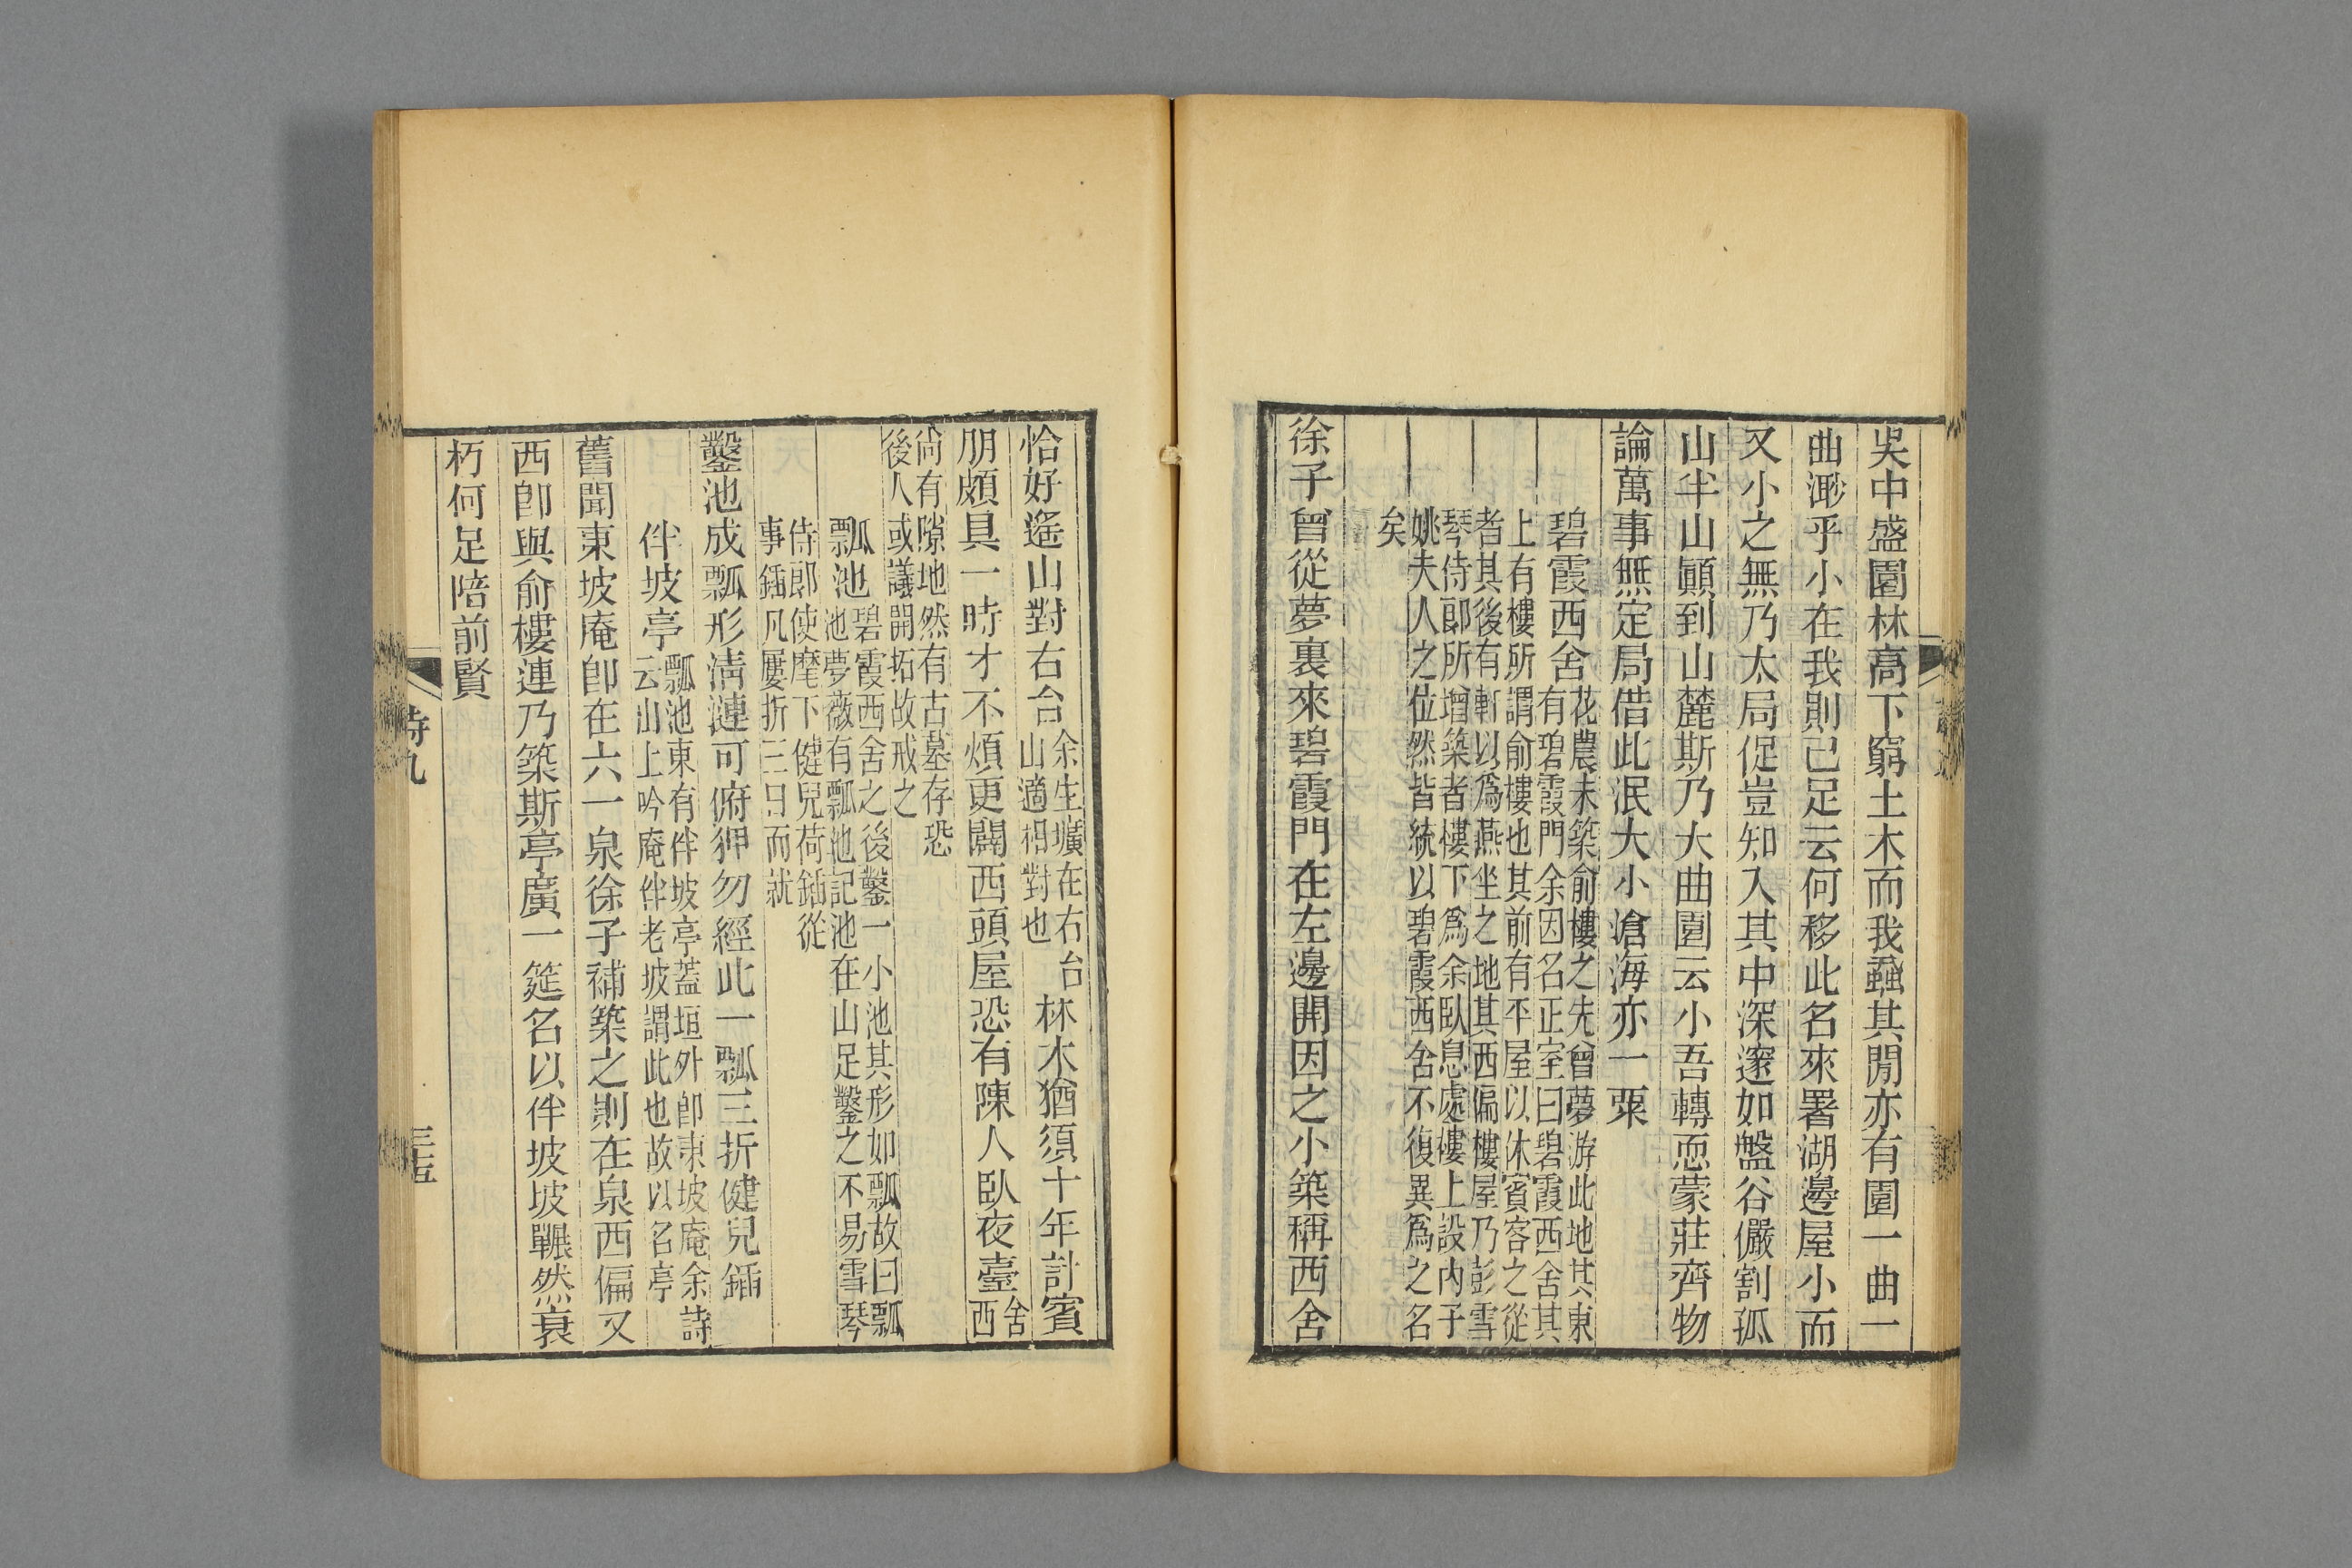 吳中盛園林高下窮土木而我蝨其閒亦有園一曲一
曲渺乎小在我則已足云何移此名來署湖邊屋小而
又小之無乃太局促豈知入其中深邃如盤谷儼割孤
山半山巓到山麓斯乃大曲園云小吾轉恧蒙莊齊物
論萬事無定局借此泯大小滄海亦一粟
碧霞西舍
花農未築俞樓之先曾夢游此地其東
有碧霞門余因名正室曰碧霞西舍其
上有樓所謂俞樓也其前有平屋以休賓客之從
者其後有軒以爲燕坐之地其西偏樓屋乃彭雪
琴侍郎所增築者樓下爲余臥息處樓上設內子
姚夫人之位然皆統以碧霞西舍不復異爲之名
矣
徐子曾從夢裏來碧霞門在左邊開因之小築稱西舍
恰好遙山對右台
余生壙在右台
山適相對也
林木猶須十年計賓
朋頗具一時才不煩更闢西頭屋恐有陳人臥夜臺
舍
西
尙有隙地然有古墓存恐
後人或議開拓故戒之
瓢池
碧霞西舍之後鑿一小池其形如瓢故曰瓢
池夢薇有瓢池記池在山足鑿之不易雪琴
侍郎使麾下健兒荷鍤從
事鍤凡屢折三日而就
鑿池成瓢形淸漣可俯狎勿經此一瓢三折健兒鍤
伴坡亭
瓢池東有伴坡亭蓋垣外卽東坡庵余詩
云山上吟庵伴老坡謂此也故以名亭
舊聞東坡庵卽在六一泉徐子補築之則在泉西偏又
西卽與俞樓連乃築斯亭廣一筵名以伴坡坡囅然衰
朽何足陪前賢
詩九
三五